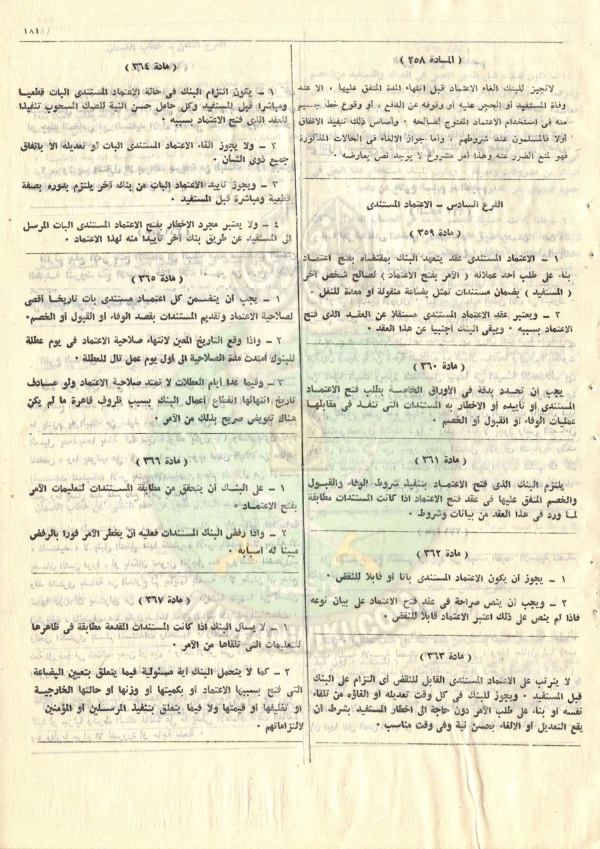 ١٨١
( المسادة ٣٥٨ )
لاتجيز للبنك الغاء الاعتماد قبل انتهاء المدة المتفق عليها ، الا عند
وفاة المستفيد أو الحجر عليه أو وقوفه عن الدفع ، أو وقوع خطا جسيم
منه في استخدام الاعتماد المفتوح لصالحه ، وأساس ذلك تنفيذ الاتفاق
أولا فالمسلمون عند شروطهم ، وأما جواز الالغاء في الحالات المذكورة
فهو لمنع الضرر عنه وهذا أمر مشروع لا يوجد نص يعارضه ٠
الفرع السادس – الاعتماد المستندى
( مادة ٣٥٩ )
١ – الاعتماد المستندى عقد يتعهد البنك بمقتضاه بفتح اعتماد
بناء على طلب أحد عملائه ( الآمر بفتح الاعتماد ) لصالح شخص آخر
( المستفيد ) بضمان مستندات تمثل بضاعة منقولة أو معدة للنقل ٠
٢ – ويعتبر عقد الاعتماد المستندى مستقلا عن العقد الذى فتح
الاعتماد بسببه ٠ ويبقى البنك أجنبيا عن هذا العقد ٠
( مادة ٣٦٠ )
يجب أن تحدد بدقة في الأوراق الخاصة بطلب فتح الاعتماد
المستندى أو تأييده أو الاخطار به المستندات التى تنفذ في مقابلها
عمليات الوفاء أو القبول أو الخصم ٠
( مادة ٣٦١ )
يلتزم البنك الذى فتح الاعتماد بتنفيذ شروط الوفاء والقبول
والخصم المتفق عليها في عقد فتح الاعتماد اذا كانت المستندات مطابقة
لما ورد في هذا العقد من بيانات وشروط ٠
( مادة ٣٦٢ )
١ – يجوز أن يكون الاعتماد المستندى باتا أو قابلا للنقض ٠
٢ – ويجب أن ينص صراحة في عقد فتح الاعتماد على بيان نوعه
فاذا لم ينص على ذلك اعتبر الاعتماد قابلا للنقض ٠
( مادة ٣٦٣ )
لا يترتب على الاعتماد المستندى القابل للنقض أى التزام على البنك
قبل المستفيد ٠ ويجوز للبنك في كل وقت تعديله أو الغاؤه من تلقاء
نفسه أو بناء على طلب الآمر دون حاجة الى اخطار المستفيد بشرط أن
يقع التعديل أو الالغاء بحسن نية وفى وقت مناسب ٠
( مادة ٣٦٤ )
١ – يكون التزام البنك في حالة الاعتماد المستندى البات قطعيا
ومباشرا قبل المستفيد وكل حامل حسن النية للصك المسحوب تنفيذا
للعقد الذى فتح الاعتماد بسببه ٠
٢ – ولا يجوز الغاء الاعتماد المستندى البات أو تعديله الا باتفاق
جميع ذوى الشأن ٠
٣ – ويجوز تأييد الاعتماد البات من بنك آخر يلتزم بدوره بصفة
قطعية ومباشرة قبل المستفيد ٠
٤ – ولا يعتبر مجرد الاخطار بفتح الاعتماد المستندى البات المرسل
الى المستفيد عن طريق بنك آخر تأييدا منه لهذا الاعتماد ٠
( مادة ٣٦٥ )
١ – يجب أن يتضمن كل اعتماد مستندى بات تاريخا أقصى
لصلاحية الاعتماد وتقديم المستندات بقصد الوفاء أو القبول أو الخصم٠
٢ – واذا وقع التاريخ المعين لانتهاء صلاحية الاعتماد في يوم عطلة
للبنوك امتدت مدة الصلاحية الى أول يوم عمل تال للعطلة ٠
٣ – وفيما عدا أيام العطلات لا تمتد صلاحية الاعتماد ولو صادف
تاريخ انتهائها انقطاع أعمال البنك بسبب ظروف قاهرة ما لم يكن
هناك تفويض صريح بذلك من الآمر ٠
( مادة ٣٦٦ )
١ – على البنك أن يتحقق من مطابقة المستندات لتعليمات الآمر
بفتح الاعتماد ٠
٢ – واذا رفض البنك المستندات فعليه أن يخطر الآمر فورا بالرفض
مبينا له أسبابه ٠
( مادة ٣٦٧ )
١ – لا يسأل البنك اذا كانت المستندات المقدمة مطابقة في ظاهرها
للتعليمات التى تلقاها من الآمر ٠
٢ – كما لا يتحمل البنك أية مسئولية فيما يتعلق بتعيين البضاعة
التى فتح بسببها الاعتماد أو بكميتها أو وزنها أو حالتها الخارجية
أو تغليفها أو قيمتها ولا فيما يتعلق بتنفيذ المرسلين أو المؤمنين
لالتزاماتهم ٠